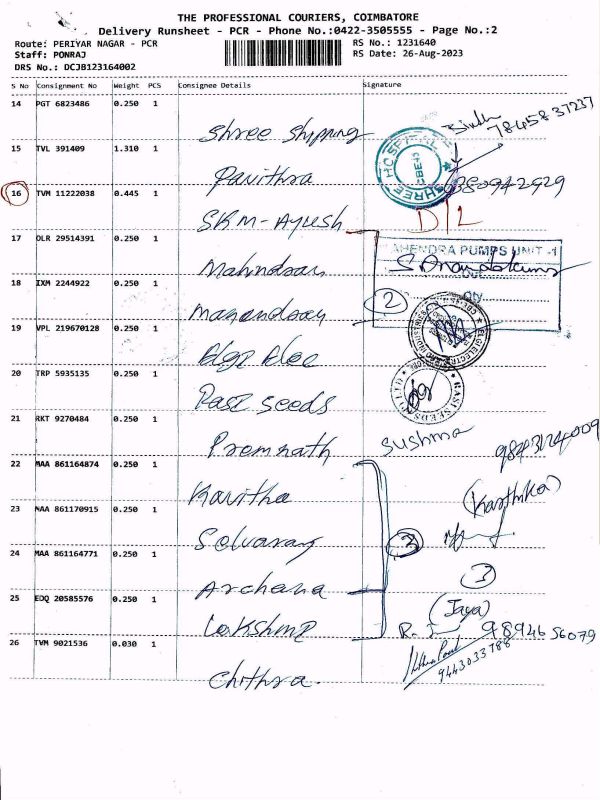 THE PROFESSIONAL COURIERS, COIMBATORE
Delivery Runsheet - PCR - Phone No.:0422-3505555 - Page No.:2
Route: PERIYAR NAGAR - PCR
RS No.: 1231640
Staff: PONRAJ
RS Date: 26-Aug-2023
DRS No.: DCJB123164002
S No Consignment No Weight PCS Consignee Details Signature
14 PGT 6823486 0.250 1
Shree Shipping
7845837237
15 TVL 391409 1.310 1
SHREE HOSPITAL
Pavithra
16 TVM 11222038 0.445 1
SKM-Ayush D/L
17 OLR 29514391 0.250 1
AHENDRA PUMPS UNIT -1
Mahndran
18 IXM 2244922 0.250 1
2
19 VPL 219670128 0.250 1
Elgi Elec
20 TRP 5935135 0.250 1
Rasi Seeds
RASI SEEDS
21 RKT 9270484 0.250 1
Sushma
Premnath
22 MAA 861164874 0.250 1
Kavitha
(Karthika)
23 MAA 861170915 0.250 1
Selvaraj
24 MAA 861164771 0.250 1
Archana
25 EDQ 20585576 0.250 1
(Jaya)
Lakshmi
98946 56079
26 TVM 9021536 0.030 1
9443033788
Chithra.